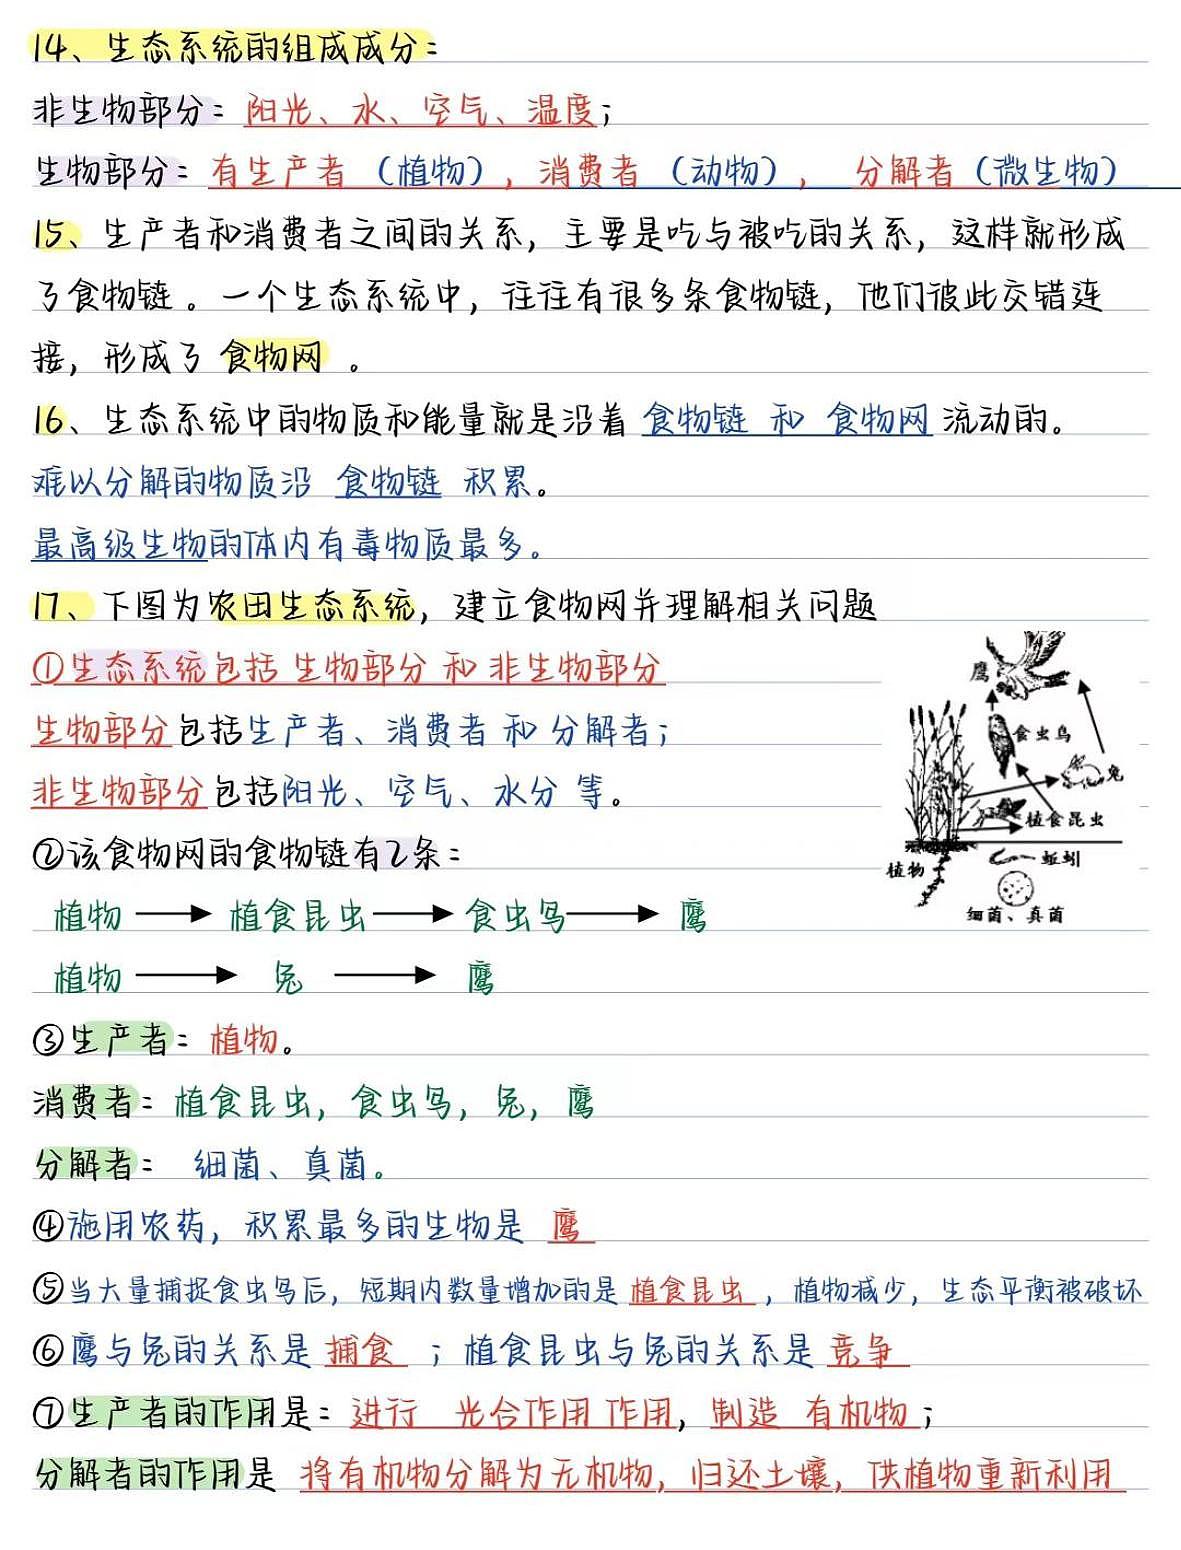 14、生态系统的组成成分：
非生物部分：阳光、水、空气、温度；
生物部分：有生产者（植物），消费者（动物）， 分解者（微生物）
15、生产者和消费者之间的关系，主要是吃与被吃的关系，这样就形成
了食物链。一个生态系统中，往往有很多条食物链，他们彼此交错连
接，形成了 食物网 。
16、生态系统中的物质和能量就是沿着 食物链 和 食物网 流动的。
难以分解的物质沿 食物链 积累。
最高级生物的体内有毒物质最多。
17、下图为农田生态系统，建立食物网并理解相关问题
①生态系统包括 生物部分 和 非生物部分
生物部分包括生产者、消费者 和 分解者；
非生物部分包括阳光、空气、水分 等。
②该食物网的食物链有2条：
植物 → 植食昆虫 → 食虫鸟 → 鹰
植物 → 兔 → 鹰
③生产者：植物。
消费者：植食昆虫，食虫鸟，兔，鹰
分解者： 细菌、真菌。
④施用农药，积累最多的生物是 鹰
⑤当大量捕捉食虫鸟后，短期内数量增加的是 植食昆虫 ，植物减少，生态平衡被破坏
⑥鹰与兔的关系是 捕食 ；植食昆虫与兔的关系是 竞争
⑦生产者的作用是：进行 光合作用 作用，制造 有机物；
分解者的作用是 将有机物分解为无机物，归还土壤，供植物重新利用
鹰
食虫鸟
兔
植食昆虫
蚯蚓
植物
细菌、真菌